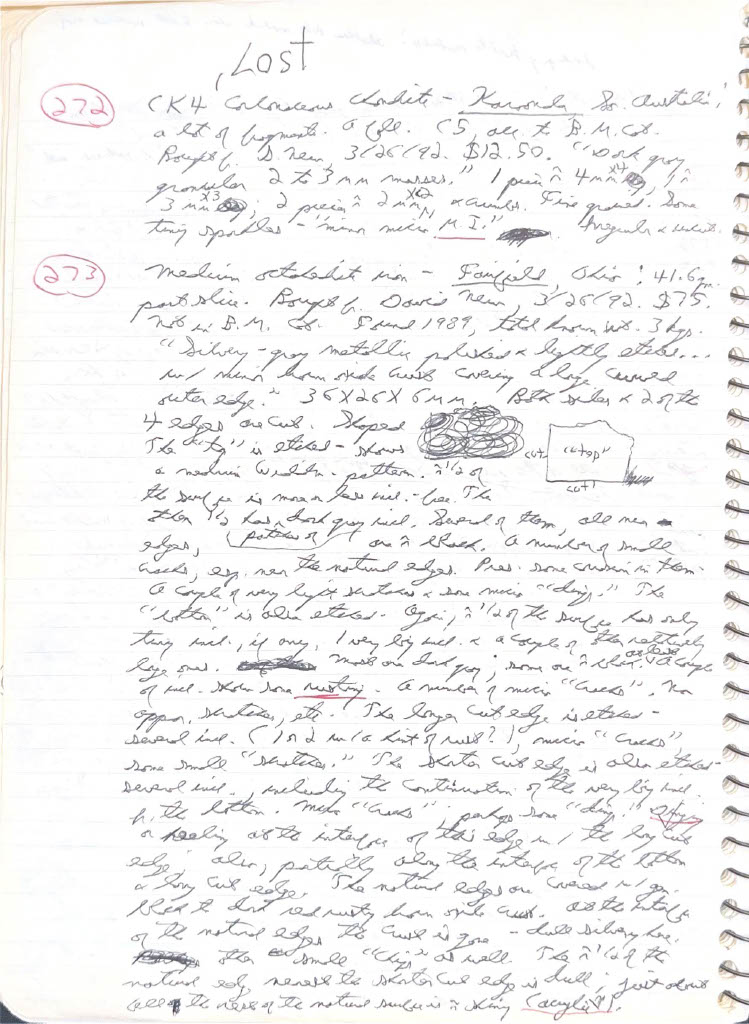 , LOST
272 CK4 Carbonaceous chondrite - Karoonda, So. Australia;
a lot of fragments. A fall. C5, acc. to B.M. Cat.
Bought fr. D. New, 3/26/92. $12.50. "Dark gray
granular 2 to 3 mm masses." 1 piece ñ 4mm x4, 1 ñ
3 mm x3; 2 pieces ñ 2 mm x2 & crumbs. Fine grained. Some
tiny sparkles - "minor micro M.I." Irregular &
273 Medium octahedrite iron - Fairfield, Ohio; 41.6 gm.
part slice. Bought fr. David New, 3/26/92. $75.
Not in B.M. Cat. Found 1989, total known wt. 3 kgs.
"Silvery-gray metallic polished & lightly etched...
w/ minor brown oxide crust covering a large curved
outer edge." 36X26X6mm. Both sides & 2 of the
4 edges are cut. Shaped
The "top" is etched - shows
cut "top"
a medium Widdm. pattern. ñ 1/2 of
cut
the surface is more or less incl.-free. The
other 1/2 has dark gray incl. Several of them, all near
edges, patches of are ñ black. A number of small
cracks, esp. near the natural edges. Pres. some corrosion in them.
A couple of very light scratches & some micro "dings." The
"bottom" is also etched. Again, ñ 1/2 of the surface has only
tiny incl., if any, 1 very big incl. & a couple of other relatively
large ones. Most are dark gray; some are ñ black. A couple
of incl. show some rusting. A number of micro "cracks". No
appar. scratches, etc. The longer cut edge is etched -
several incl. (1 or 2 w/ a hint of rust?), micro "cracks",
some small "scratches." The shorter cut edge is also etched -
several incl., including the continuation of the very big incl.
fr. the bottom. Micro "cracks"; perhaps some "dings."
or peeling at the interface of this edge w/ the long cut
edge; also, partially along the interface of the bottom
& long cut edge. The natural edges are covered w/ gen.
black to dark red rusty brown oxide crust. At the interface
of the natural edges the crust is gone - dull silvery here.
other small "chips" as well. The ñ 1/2 of the
natural edge nearest the shorter cut edge is dull; just about
all the rest of the natural surface is ñ shiny (acrylic?).